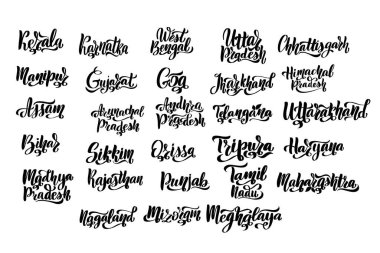 Kerala Karnatka West Bengal Uttar Pradesh Chhattisgarh
Manipur Gujarat Goa Jharkhand Himachal Pradesh
Assam Arunachal Pradesh Andhra Pradesh Telangana Uttarakhand
Bihar Sikkim Orissa Tripura Haryana
Madhya Pradesh Rajasthan Punjab Tamil Nadu Maharashtra
Nagaland Mizoram Meghalaya